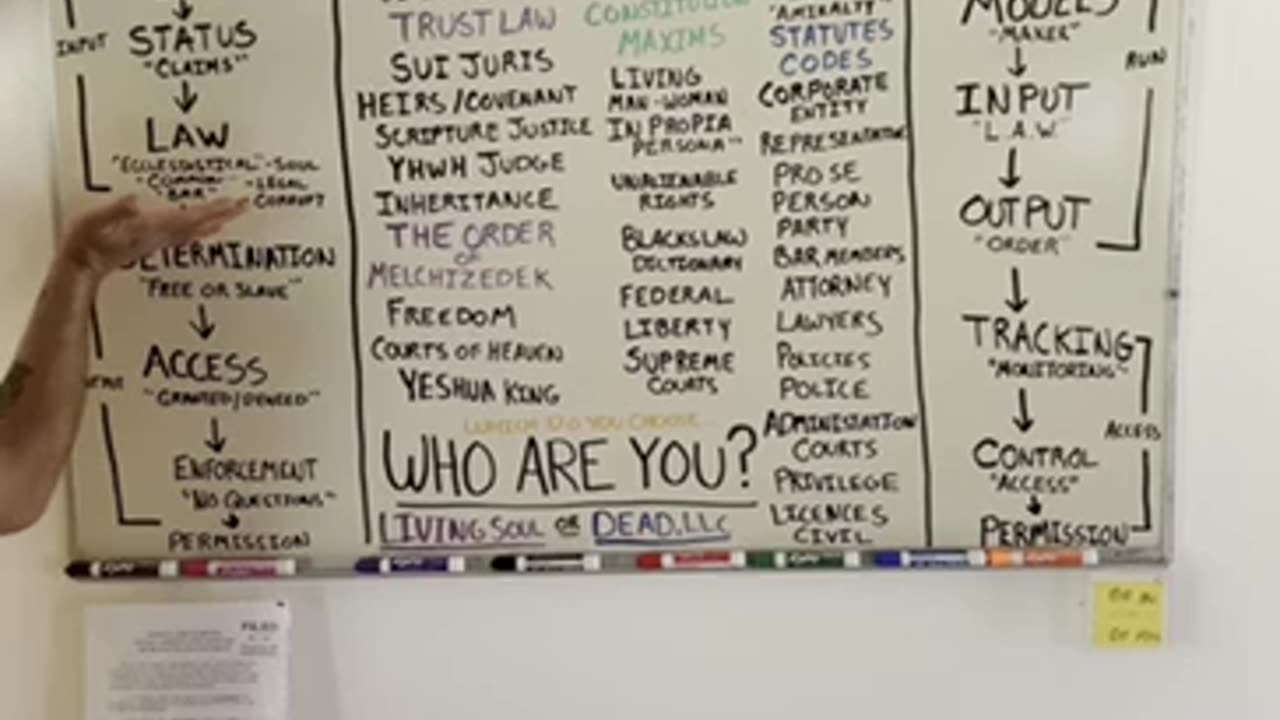 INPUT
STATUS
"CLAIMS"
LAW
"ECCLESDISTICAL" - SOUL
"COMMON" - LEGAL
"BAR" - CORRUPT
DETERMINATION
"FREE OR SLAVE"
ACCESS
"GRANTED/DENIED"
ENFORCEMENT
"NO QUESTIONS"
PERMISSION
TRUST LAW
SUI JURIS
HEIRS/COVENANT
SCRIPTURE JUSTICE
YHWH JUDGE
INHERITANCE
THE ORDER
OF
MELCHIZEDEK
FREEDOM
COURTS OF HEAVEN
YESHUA KING
MAXIMS
LIVING
MAN-WOMAN
IN PROPIA
PERSONA"
UNALIENABLE
RIGHTS
BLACKS LAW
DICTIONARY
FEDERAL
LIBERTY
SUPREME
COURTS
"AMIRALTY"
STATUTES
CODES
CORPORATE
ENTITY
REPRESENTATIVE
PRO SE
PERSON
PARTY
BAR MEMBERS
ATTORNEY
LAWYERS
POLICIES
POLICE
ADMINISTATION
COURTS
PRIVILEGE
LICENCES
CIVIL
WHICH DO YOU CHOOSE...
WHO ARE YOU?
LIVING SOUL OR DEAD.LLC
MODELS
"MAKER"
RUN
INPUT
"L.A.W."
OUTPUT
"ORDER"
TRACKING
"MONITORING"
ACCESS
CONTROL
"ACCESS"
PERMISSION
FILED